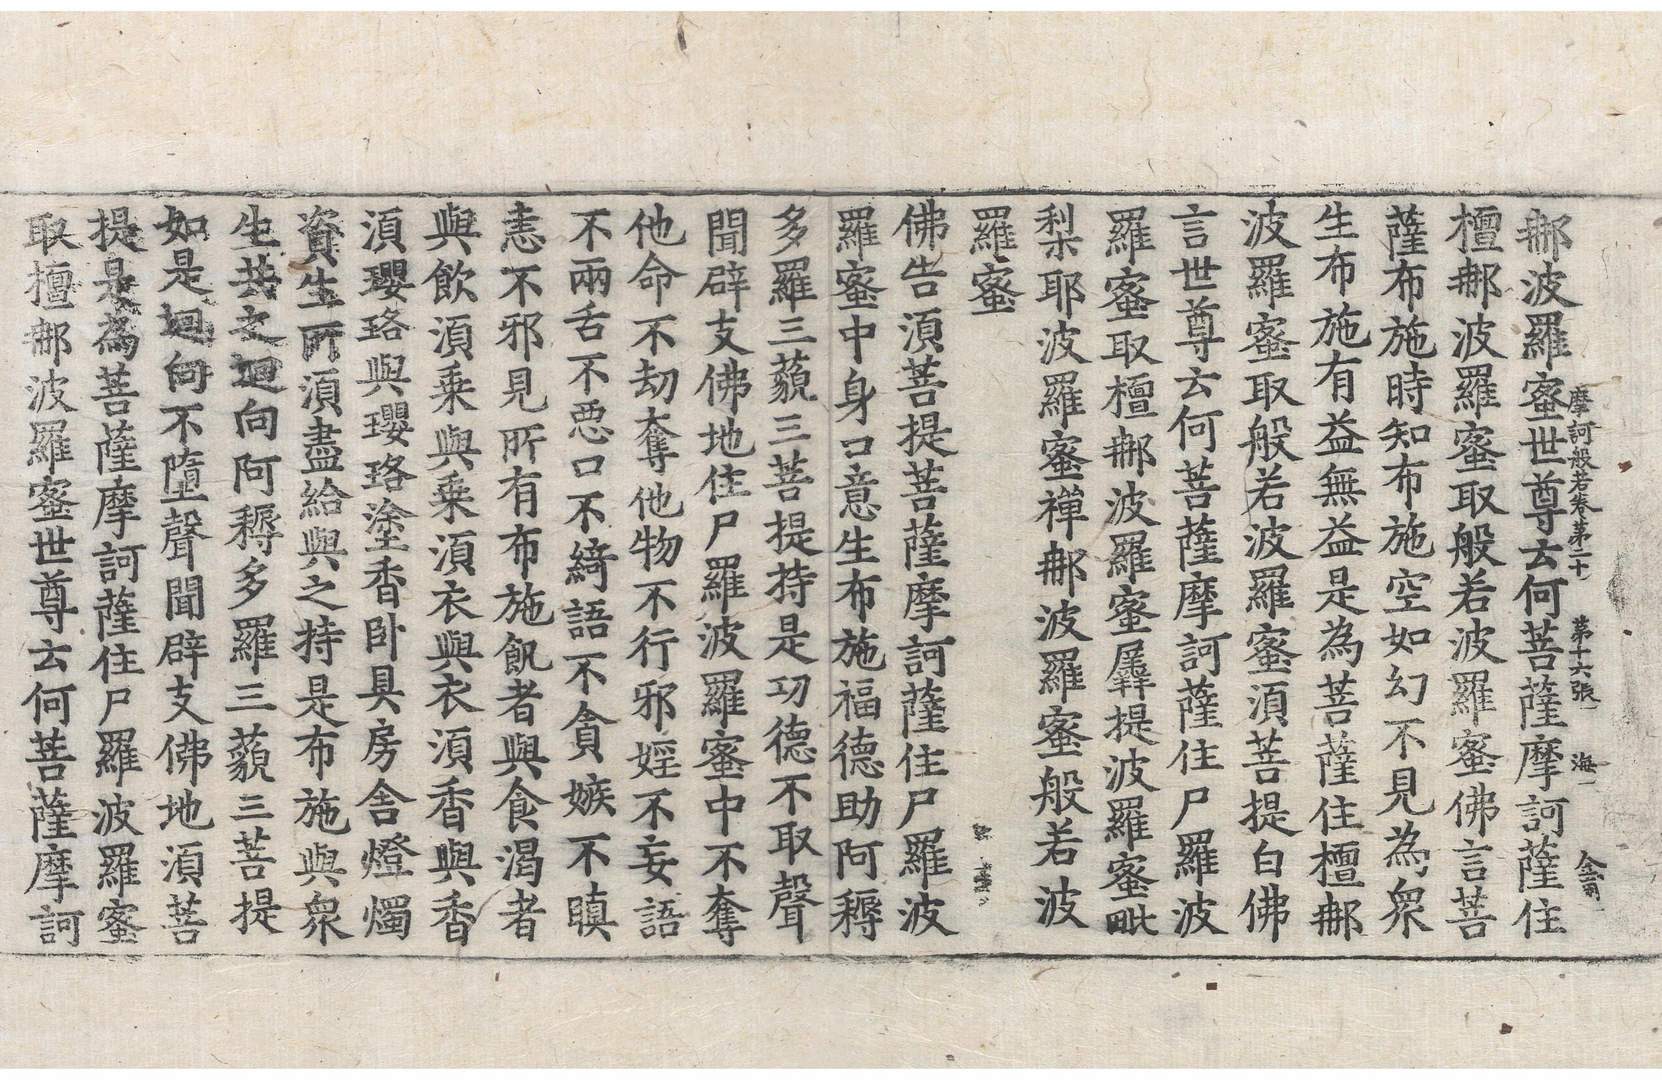 摩訶般若卷第二十 第十六張 海
郍波羅蜜世尊云何菩薩摩訶薩住
檀郍波羅蜜取般若波羅蜜佛言菩
薩布施時知布施空如幻不見為衆
生布施有益無益是為菩薩住檀郍
波羅蜜取般若波羅蜜湏菩提白佛
言世尊云何菩薩摩訶薩住尸羅波
羅蜜取檀郍波羅蜜羼提波羅蜜毗
梨耶波羅蜜禪郍波羅蜜般若波
羅蜜
佛告湏菩提菩薩摩訶薩住尸羅波
羅蜜中身口意生布施福德助阿耨
多羅三藐三菩提持是功德不取聲
聞辟支佛地住尸羅波羅蜜中不奪
他命不劫奪他物不行邪婬不妄語
不兩舌不惡口不綺語不貪嫉不瞋
恚不邪見所有布施飢者與食渴者
與飲湏乗與乗湏衣與衣湏香與香
湏瓔珞與瓔珞塗香卧具房舍燈燭
資生所湏盡給與之持是布施與衆
生共之迴向阿耨多羅三藐三菩提
如是迴向不墮聲聞辟支佛地湏菩
提是為菩薩摩訶薩住尸羅波羅蜜
取檀郍波羅蜜世尊云何菩薩摩訶